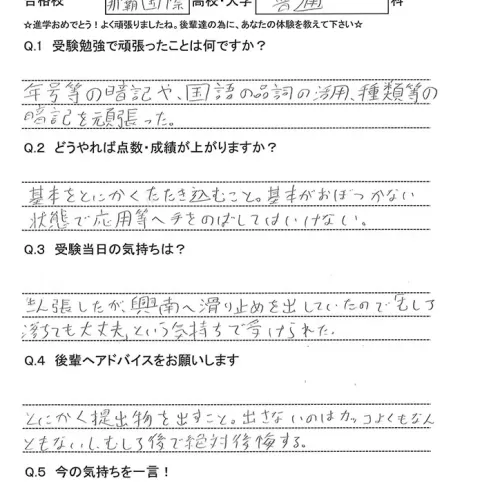 合格校 那覇国際 高校・大学 普通 科
☆進学おめでとう！よく頑張りましたね。後輩達の為に、あなたの体験を教えて下さい☆
Q.1 受験勉強で頑張ったことは何ですか？
年号等の暗記や、国語の品詞の活用、種類等の
暗記を頑張った。
Q.2 どうやれば点数・成績が上がりますか？
基本をとにかくたたき込むこと。基本がおぼつかない
状態で応用等へ手をのばしてはいけない。
Q.3 受験当日の気持ちは？
緊張したが、興南へ滑り止めを出していたので「むしろ
落ちても大丈夫」という気持ちで受けられた。
Q.4 後輩へアドバイスをお願いします
とにかく提出物を出すこと。出さないのはカッコよくもなん
ともないし、むしろ後で絶対後悔する。
Q.5 今の気持ちを一言！